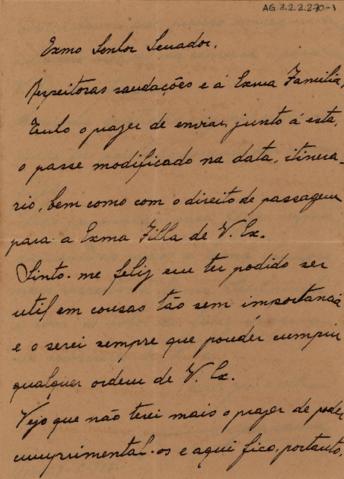 AG 2.2.2.270-1
Exmo Senhor Senador.
Respeitosas saudações e á Exma Familia,
Tenho o prazer de enviar, junto á esta,
o passe modificado na data, itinera-
rio, bem como com o direito de passagem
para a Exma Filha de V. Ex.
Sinto-me feliz em ter podido ser
util em cousas tão sem importancia
e o serei sempre que pouder cumprir
qualquer ordem de V. Ex.
Vejo que não terei mais o prazer de poder
cumprimental-os e aqui fico, portanto,